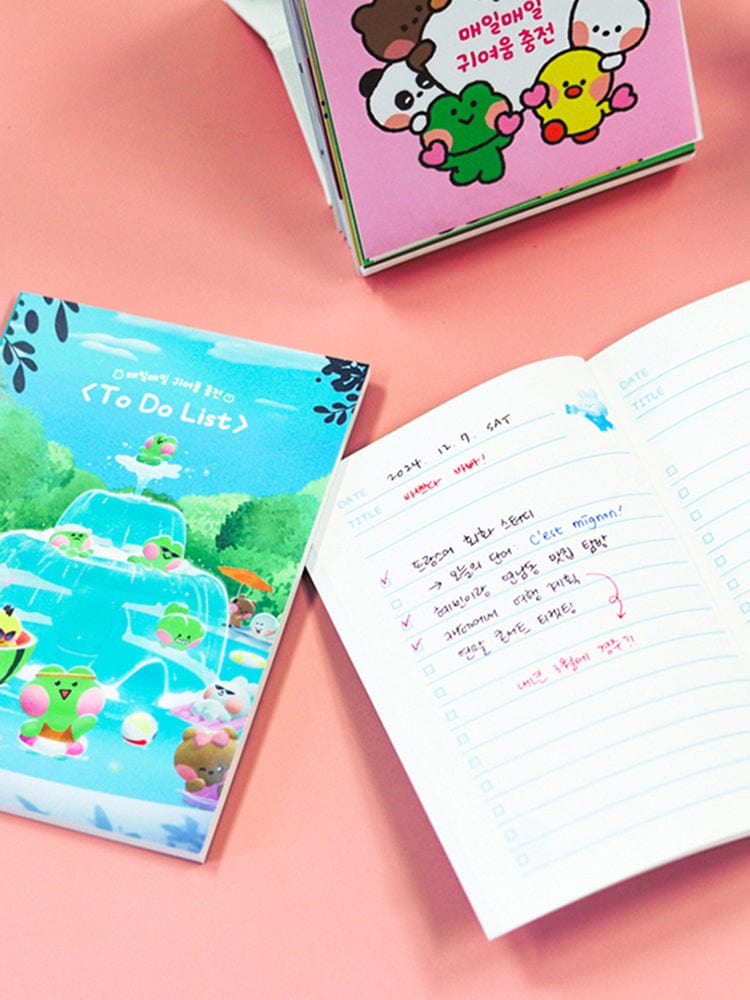 매일매일
귀여움 충전
매일매일 귀여움 충전
<To Do List>
DATE 2024. 12. 7. SAT
TITLE 바쁘다 바빠!
프랑스어 회화 스터디
→ 오늘의 단어: C'est mignon!
혜빈이랑 연남동 맛집 탐방
카페에서 여행 계획
연말 콘서트 티켓팅
내년 3월에 경주?!
DATE
TITLE